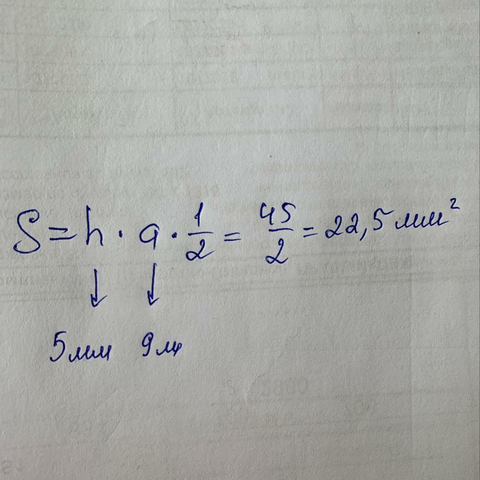 S = h · a · 1/2 = 45/2 = 22,5 мм²
↓ ↓
5мм 9м